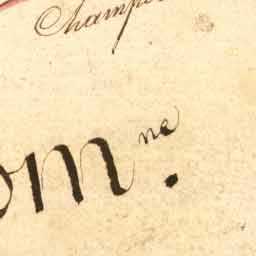 Champi
om.ne